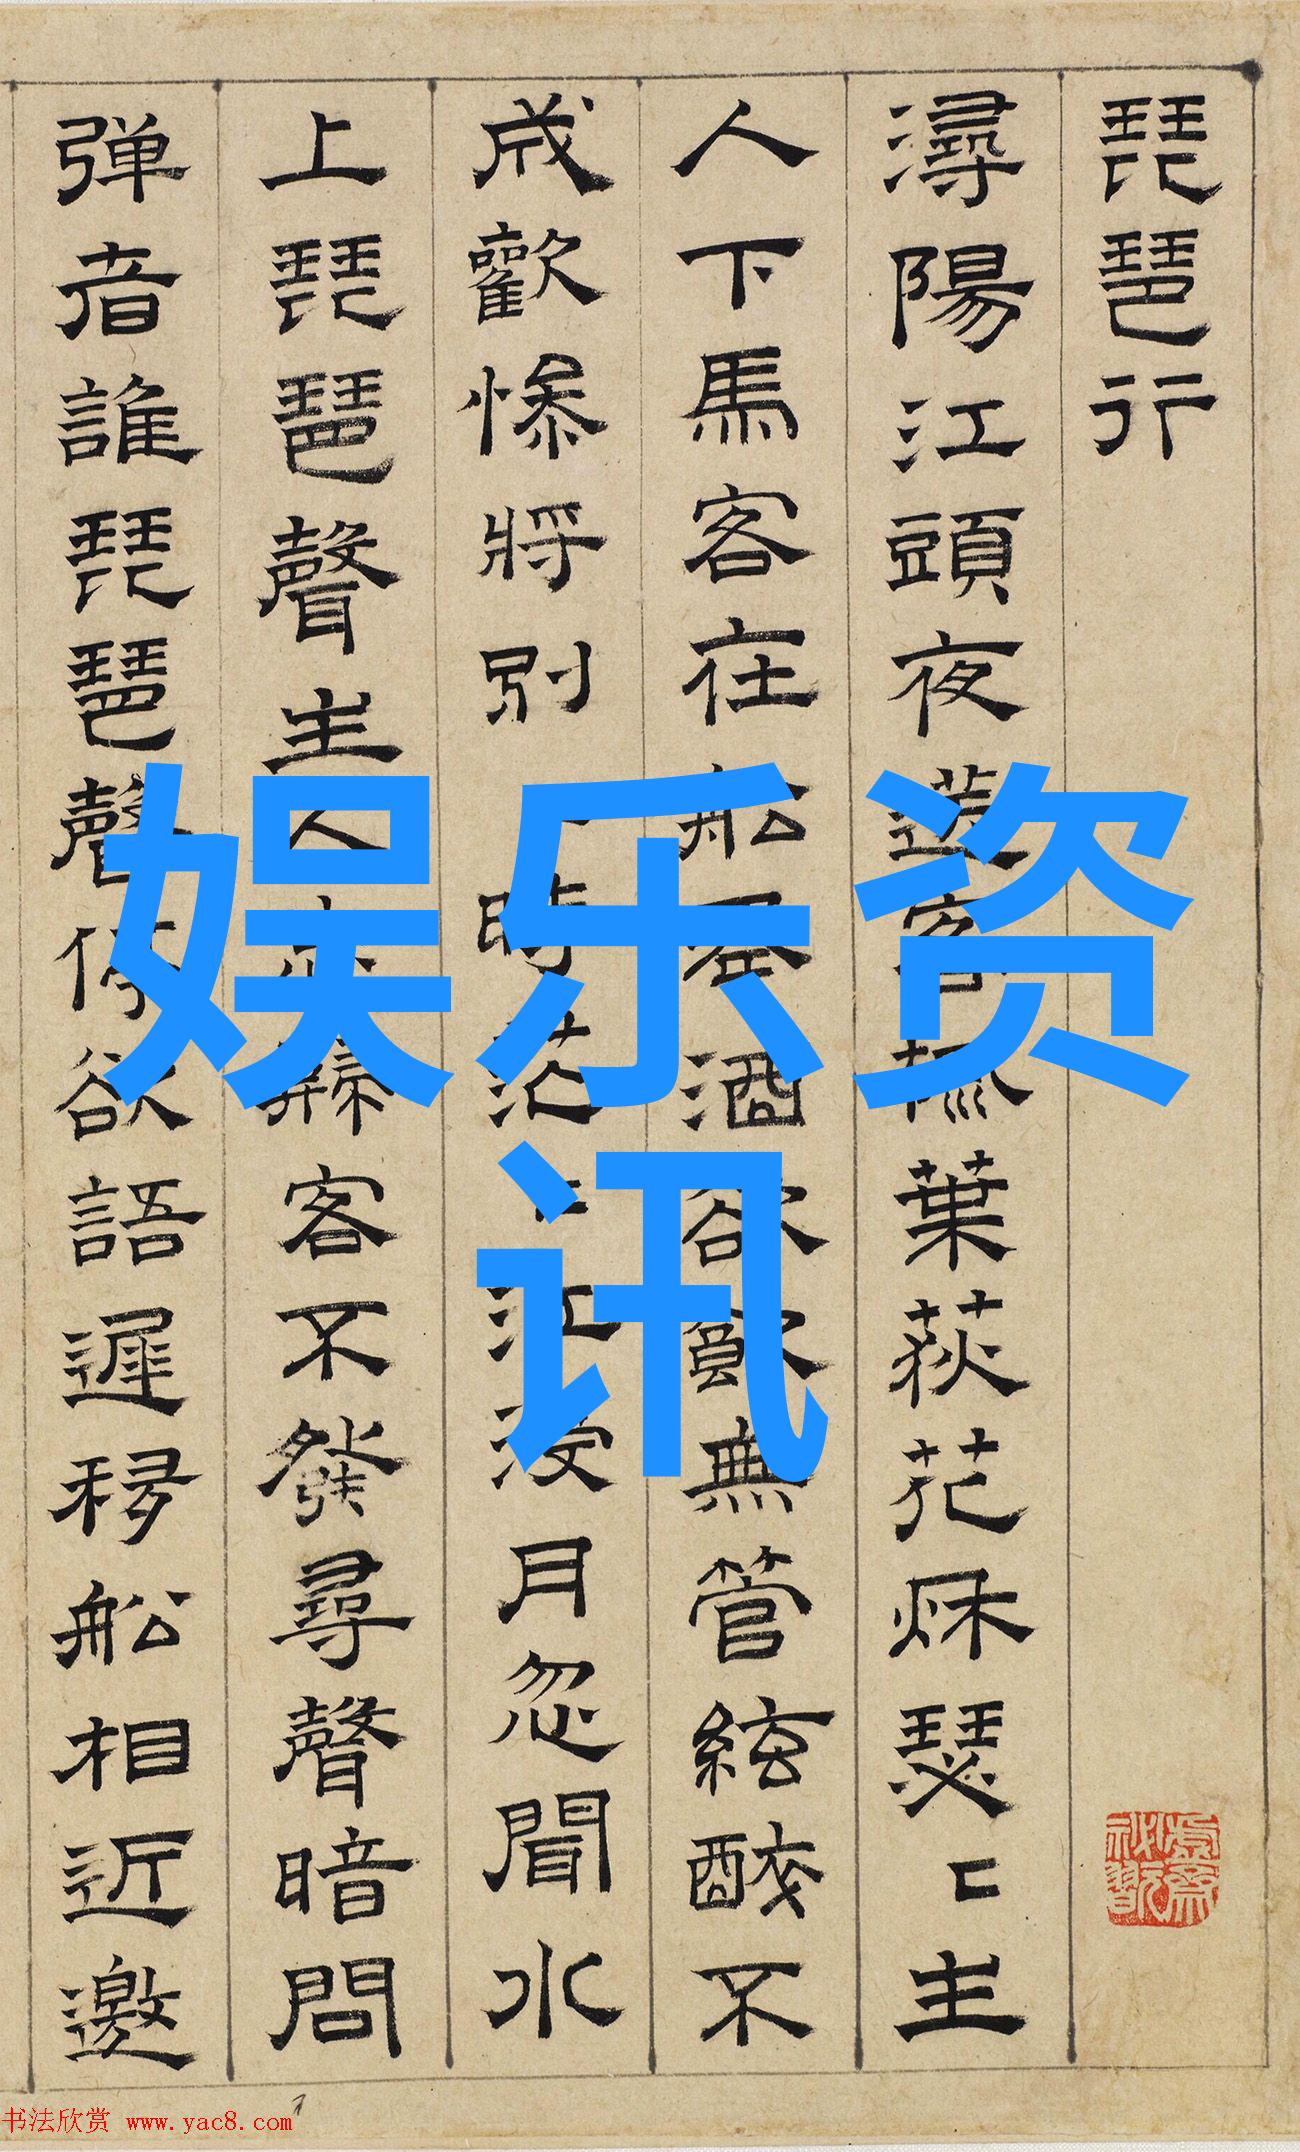 琵琶行
潯陽江頭夜送客楓葉荻花秌瑟〻主
人下馬客在船酒欲飲無管絃醉不
成歡慘將別時茫江浸月忽聞水
上琵琶聲主人歸客不發尋聲暗問
弹者誰琵琶聲停欲語遲移船相近邀
娱乐资
讯
书法欣赏 www.yac8.com